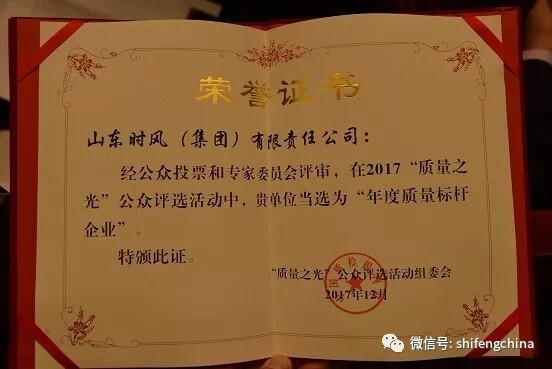 荣誉证书
山东时风（集团）有限责任公司：
经公众投票和专家委员会评审，在2017“质量之
光”公众评选活动中，贵单位当选为“年度质量标杆
企业”。
特颁此证。
“质量之光”公众评选活动组委会
2017年12月
微信号: shifengchina